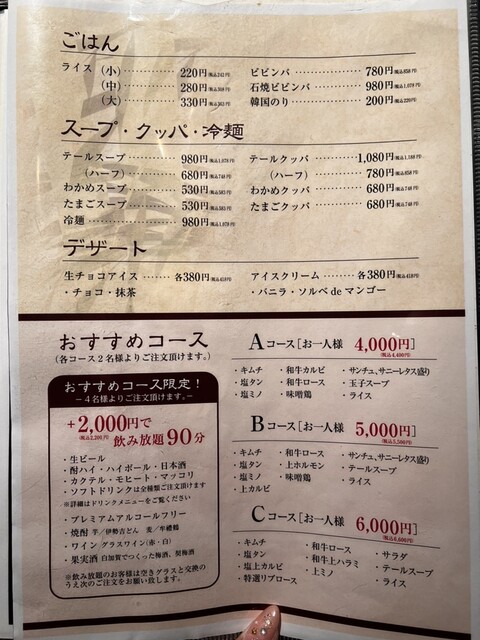 ごはん
ライス（小）‥‥‥‥ 220円(税込242円)
（中）‥‥‥‥ 280円(税込308円)
（大）‥‥‥‥ 330円(税込363円)
ビビンバ ‥‥‥‥ 780円(税込858円)
石焼ビビンバ ‥‥‥‥ 980円(税込1,078円)
韓国のり ‥‥‥‥ 200円(税込220円)
スープ・クッパ・冷麺
テールスープ ‥‥‥‥ 980円(税込1,078円)
（ハーフ）‥‥‥‥ 680円(税込748円)
わかめスープ ‥‥‥‥ 530円(税込583円)
たまごスープ ‥‥‥‥ 530円(税込583円)
冷麺 ‥‥‥‥ 980円(税込1,078円)
テールクッパ ‥‥‥‥ 1,080円(税込1,188円)
（ハーフ）‥‥‥‥ 780円(税込858円)
わかめクッパ ‥‥‥‥ 680円(税込748円)
たまごクッパ ‥‥‥‥ 680円(税込748円)
デザート
生チョコアイス ‥‥‥ 各380円(税込418円)
・チョコ・抹茶
アイスクリーム ‥‥‥ 各380円(税込418円)
・バニラ・ソルベ de マンゴー
おすすめコース
（各コース２名様よりご注文頂けます。）
おすすめコース限定！
－４名様よりご注文頂けます。－
+2,000円で
(税込2,200円)
飲み放題90分
・生ビール
・酎ハイ・ハイボール・日本酒
・カクテル・モヒート・マッコリ
・ソフトドリンクは全種類ご注文頂けます
※詳細はドリンクメニューをご覧ください
・プレミアムアルコールフリー
・焼酎 芋／伊勢吉どん 麦／牟禮鶴
・ワイン グラスワイン(赤・白)
・果実酒 白加賀でつくった梅酒、契梅酒
※飲み放題のお客様は空きグラスと交換の
うえ次のご注文をお願い致します。
Aコース［お一人様 4,000円］
(税込4,400円)
・キムチ ・和牛カルビ ・サンチュ、サニーレタス盛り
・塩タン ・和牛ロース ・玉子スープ
・塩ミノ ・味噌鶏 ・ライス
Bコース［お一人様 5,000円］
(税込5,500円)
・キムチ ・和牛ロース ・サンチュ、サニーレタス盛り
・塩タン ・上ホルモン ・テールスープ
・塩ミノ ・味噌鶏 ・ライス
・上カルビ
Cコース［お一人様 6,000円］
(税込6,600円)
・キムチ ・和牛ロース ・サラダ
・塩タン ・和牛上ハラミ ・テールスープ
・塩上カルビ ・上ミノ ・ライス
・特選リブロース